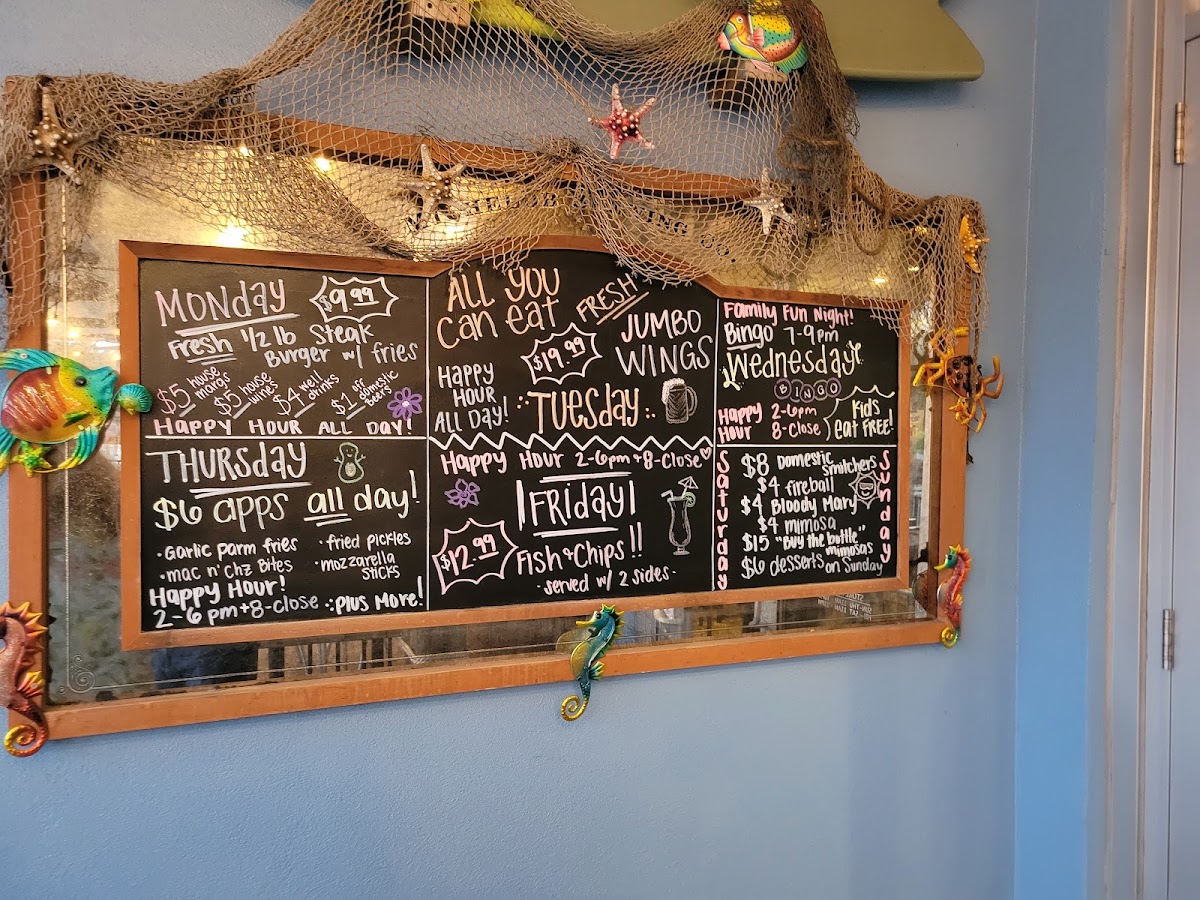 MONDAY $9.99
Fresh 1/2 lb Steak
Burger w/ fries
$5 house margs
$5 house wines
$4 well drinks
$1 off domestic beers
HAPPY HOUR ALL DAY!
ALL YOU
can eat FRESH
$19.99 JUMBO
WINGS
Happy
HOUR
ALL DAY!
TUESDAY
Family Fun Night!
Bingo 7-9pm
Wednesday
BINGO
Happy Hour 2-6pm
8-Close
Kids
eat FREE!
THURSDAY
$6 apps all day!
•Garlic parm fries
•mac n' chz Bites
•fried pickles
•mozzarella
sticks
Happy Hour!
2-6pm+8-close •:plus more!
Happy Hour 2-6pm+8-Close
FRIDAY
$12.99 Fish+Chips!!
-served w/ 2 sides-
Saturday
$8 Domestic
Smitchers
$4 fireball
$4 Bloody Mary
$4 mimosa
$15 "Buy the bottle"
mimosas
$6 desserts on Sunday
Sunday